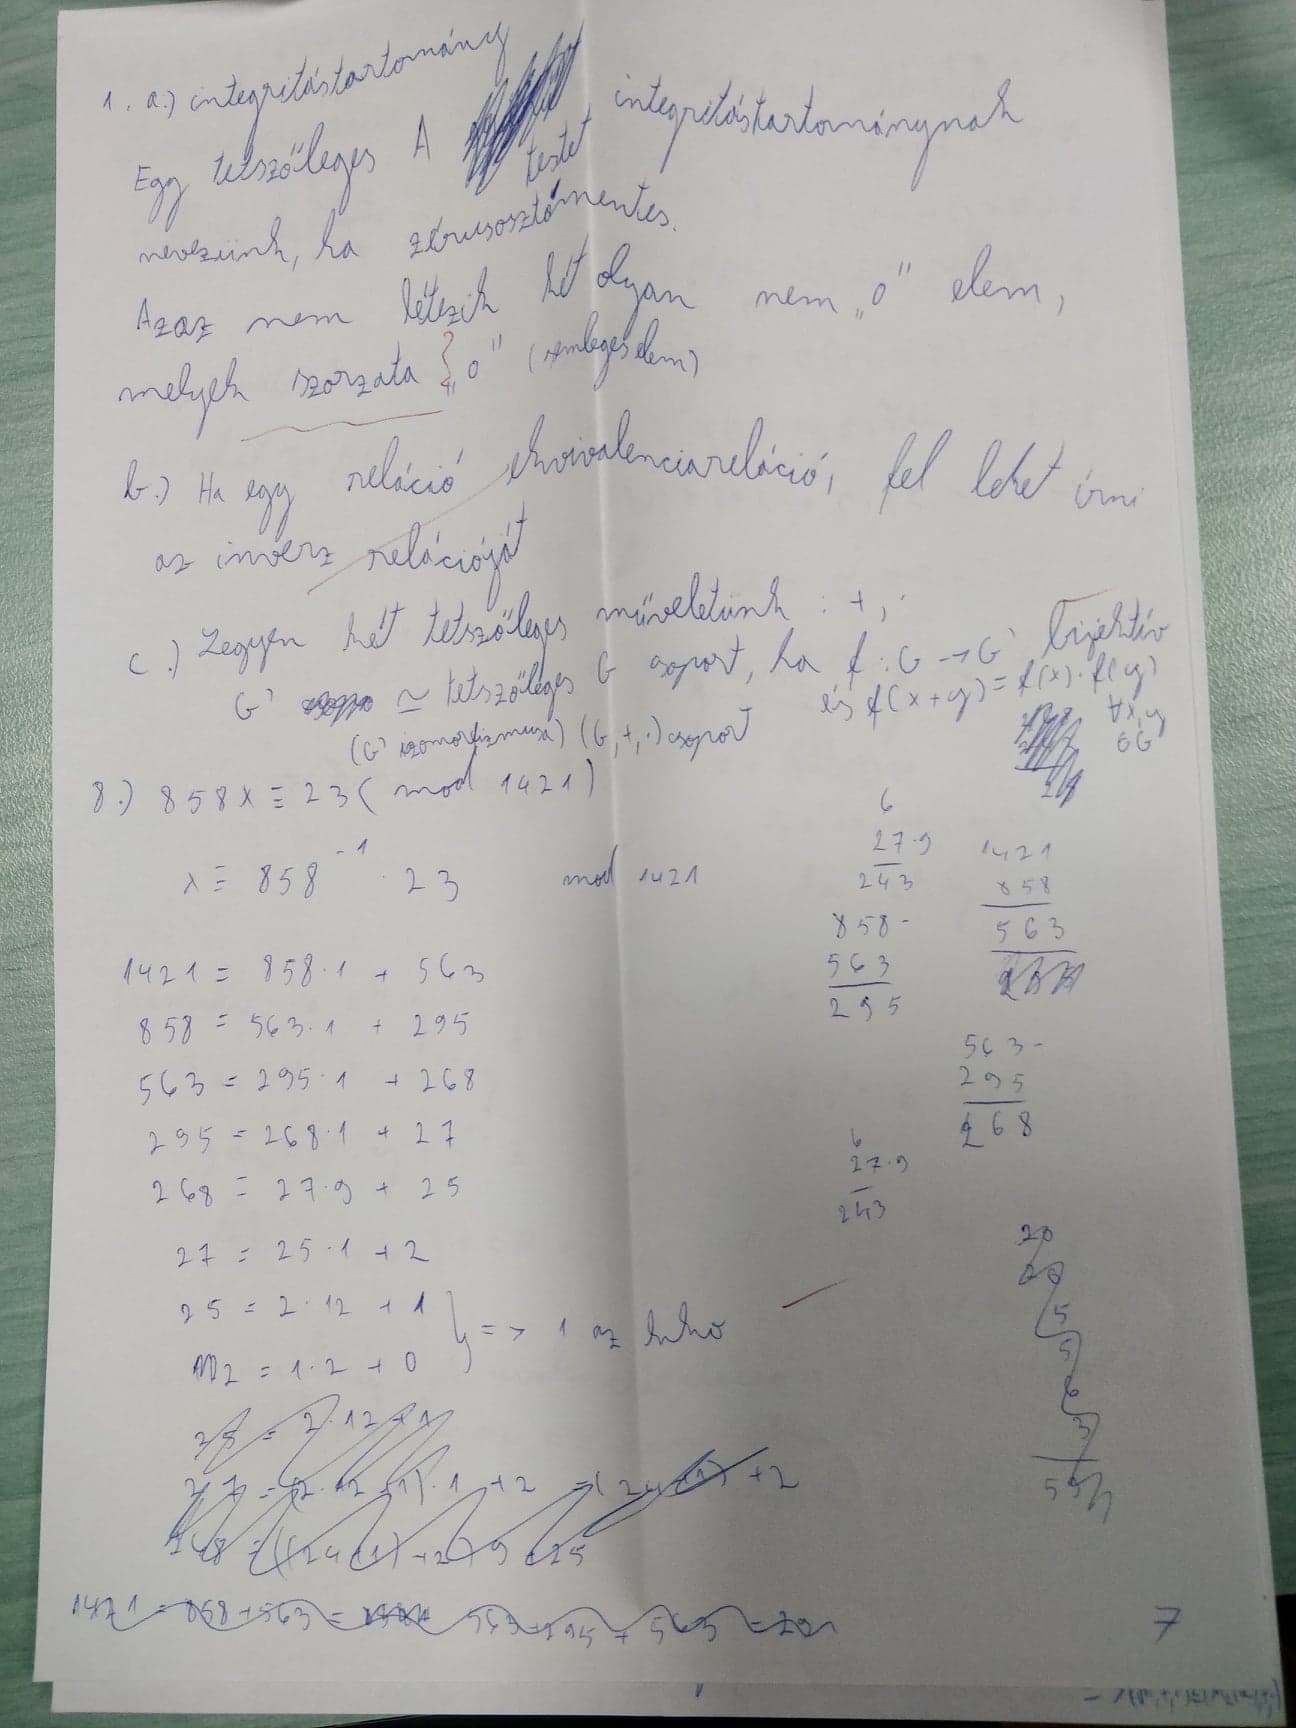 1. a.) integritástartomány
Egy tetszőleges A testet integritástartománynak
nevezünk, ha zérusosztómentes.
Azaz nem létezik két olyan nem „0" elem,
melyek szorzata „0" (semleges elem)
b.) Ha egy reláció ekvivalenciareláció, fel lehet írni
az inverz relációját
c.) Legyen két tetszőleges műveletünk : +, ·
G' ≃ tetszőleges G csoport, ha f : G → G' bijektív
és f(x+y) = f(x)·f(y)
∀x,y
∈G
(G' izomorfizmusa) (G,+,·) csoport
8.) 858x ≡ 23 (mod 1421)
x ≡ 858⁻¹ · 23 mod 1421
1421 = 858·1 + 563
858 = 563·1 + 295
563 = 295·1 + 268
295 = 268·1 + 27
268 = 27·9 + 25
27 = 25·1 + 2
25 = 2·12 + 1
2 = 1·2 + 0
} => 1 az lnko
6
27·9
243
858-
563
295
1421
858
563
563-
295
268
6
27·9
243
20
5
5
6
3
27 = (2·12+1)·1 + 2
268 = ((24+1)+2)9+25
1421 = 858+563 = 563+295+563
7